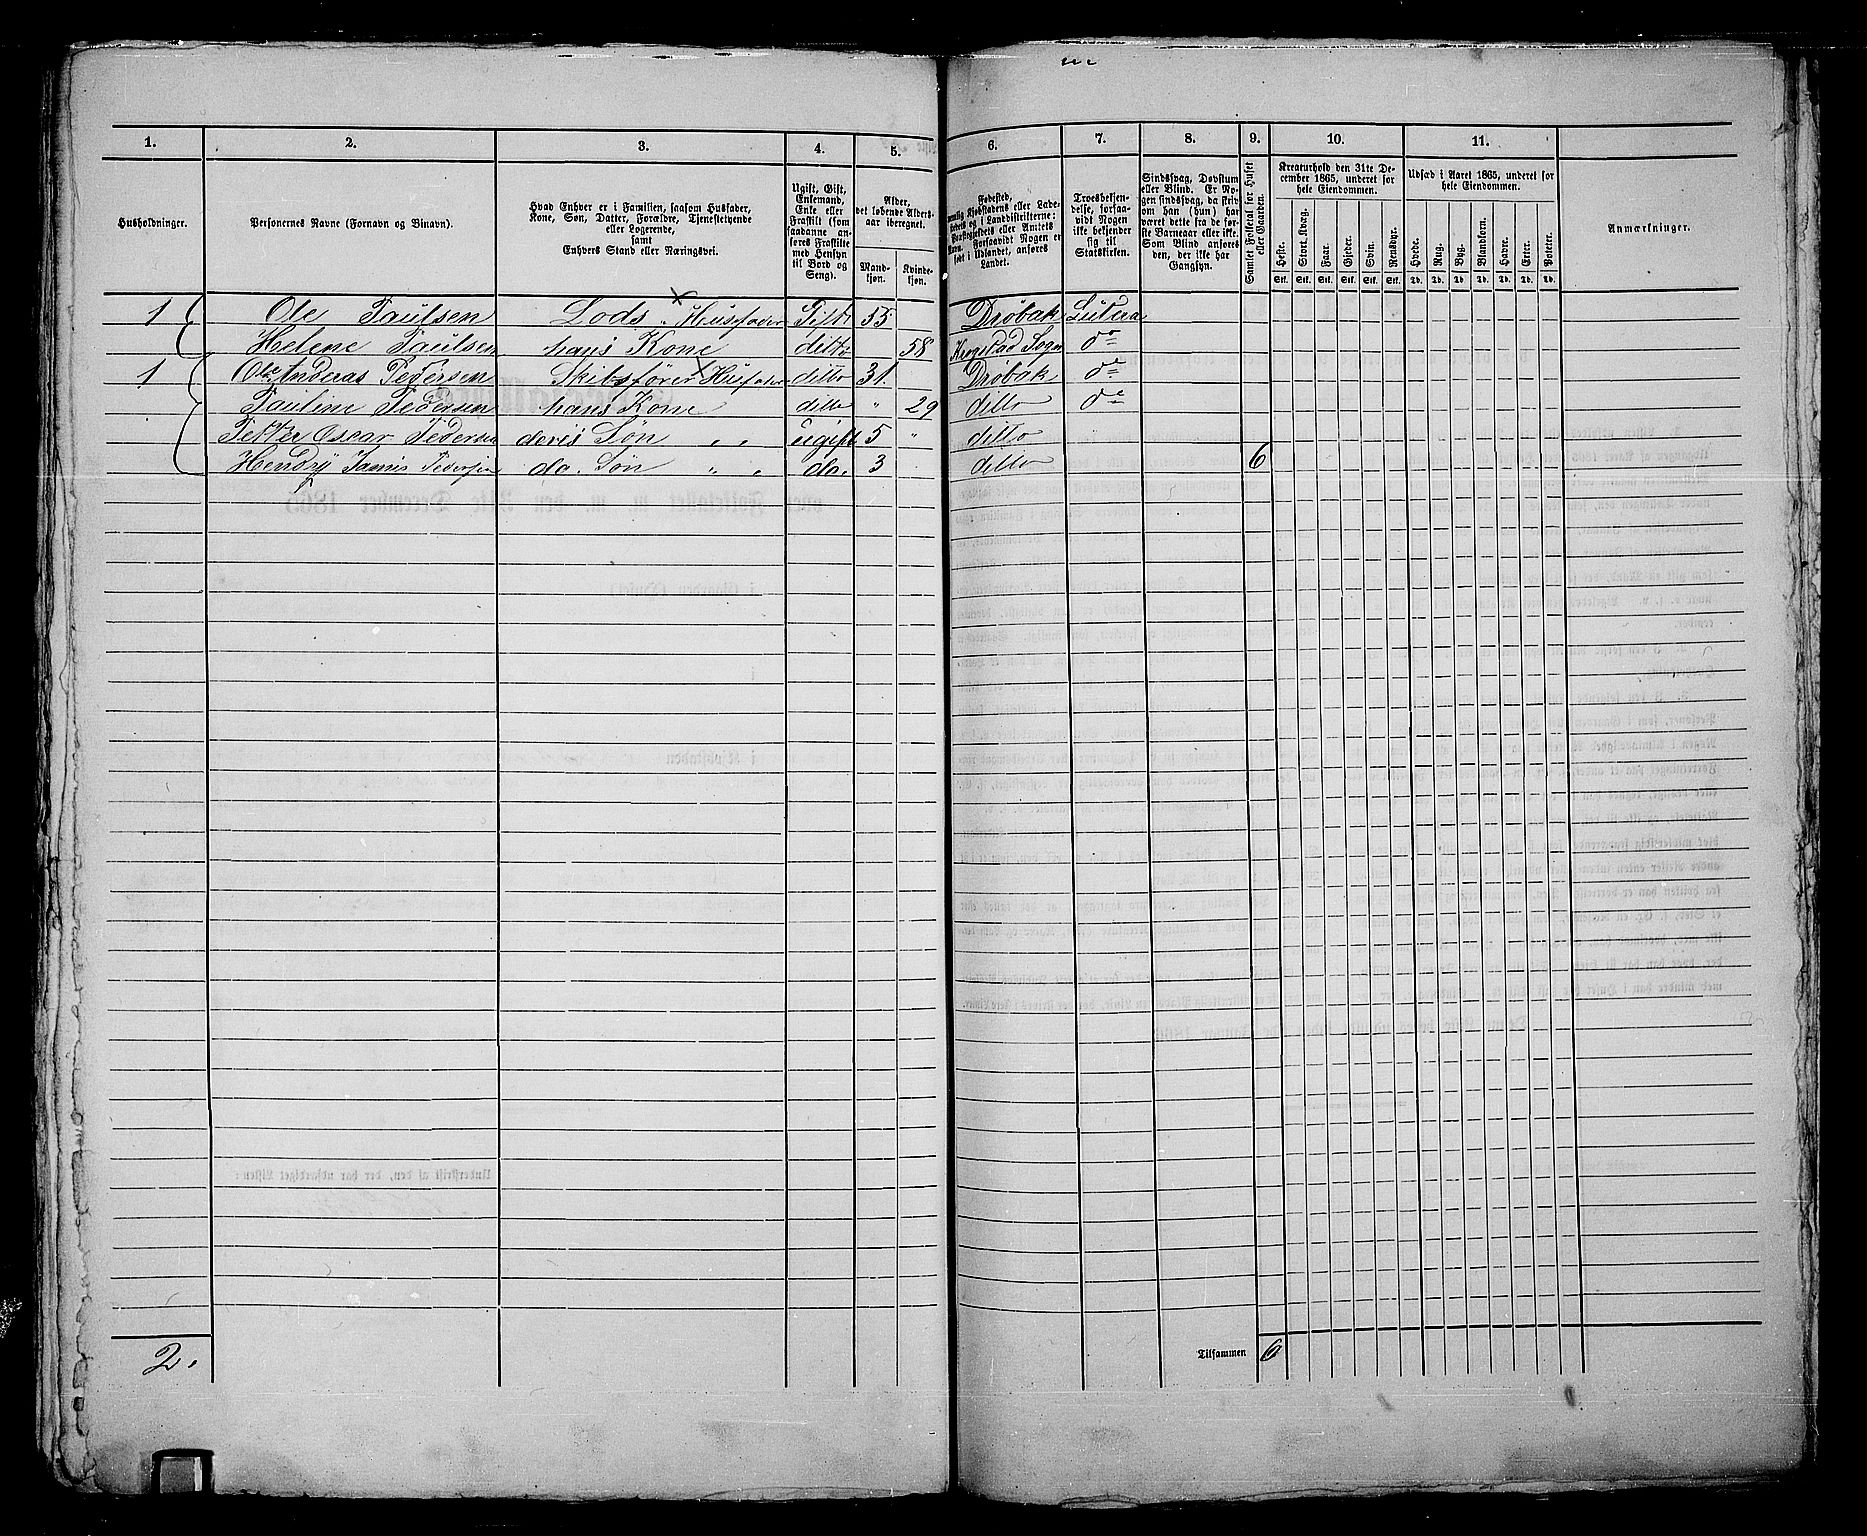 1. 2. 3. 4. 5. 6. 7. 8. 9. 10. 11.
Husholdninger.
Personernes Navne (Fornavn og Binavn).
Hvad Enhver er i Familien, saasom Husfader,
Kone, Søn, Datter, Forældre, Tjenestetyende
eller Logerende,
samt
Enhvers Stand eller Næringsvei.
Ugift, Gift,
Enkemand,
Enke eller
Fraskilt (som
saadanne an-
føres Fraskilte
med Hensyn
til Bord og
Seng).
Alder,
det løbende Alders-
aar iberegnet.
Mand-
kjøn.
Kvinde-
kjøn.
Fødested,
Kjøbstadens eller Lade-
i Landdistrikterne:
eller Amtets
Forsaavidt Nogen er
født i Udlandet, anføres
Landet.
Troesbekjen-
delse, forsaa-
vidt Nogen
ikke bekjender
sig til
Statskirken.
Sindssvag, Døvstum
eller Blind. Er No-
gen sindssvag, da skriv
om han (hun) har
været dette fra de før-
ste Barneaar eller ikke.
Som Blind anføres
den, der ikke har
Gangsyn.
Samlet Folketal for Huset
eller Gaarden.
Kreaturhold den 31te De-
cember 1865, underet for
hele Eiendommen.
Heste. Stort Kvæg. Faar. Gjeder. Svin. Rensdyr.
Stk. Stk. Stk. Stk. Stk. Stk.
Udsæd i Aaret 1865, underet for
hele Eiendommen.
Hvede. Rug. Byg. Blandkorn. Havre. Erter. Poteter.
Td. Td. Td. Td. Td. Td. Td.
Anmærkninger.
1 Ole Paulsen Lods Husfader Gift 55 Drøbak Luthera
Helene Paulsen hans Kone ditto 58 Krogstad Sogn do
1 Ole Andreas Pedersen Skibsfører Husfader ditto 31. Drøbak do
Pauline Pedersen hans Kone ditto " 29 ditto do
Petter Oscar Pedersen deris Søn " " ugift 5 " ditto
Hendrÿ Jamis Pedersen do. Søn " " do. 3 ditto 6
2.
Tilsammen 6